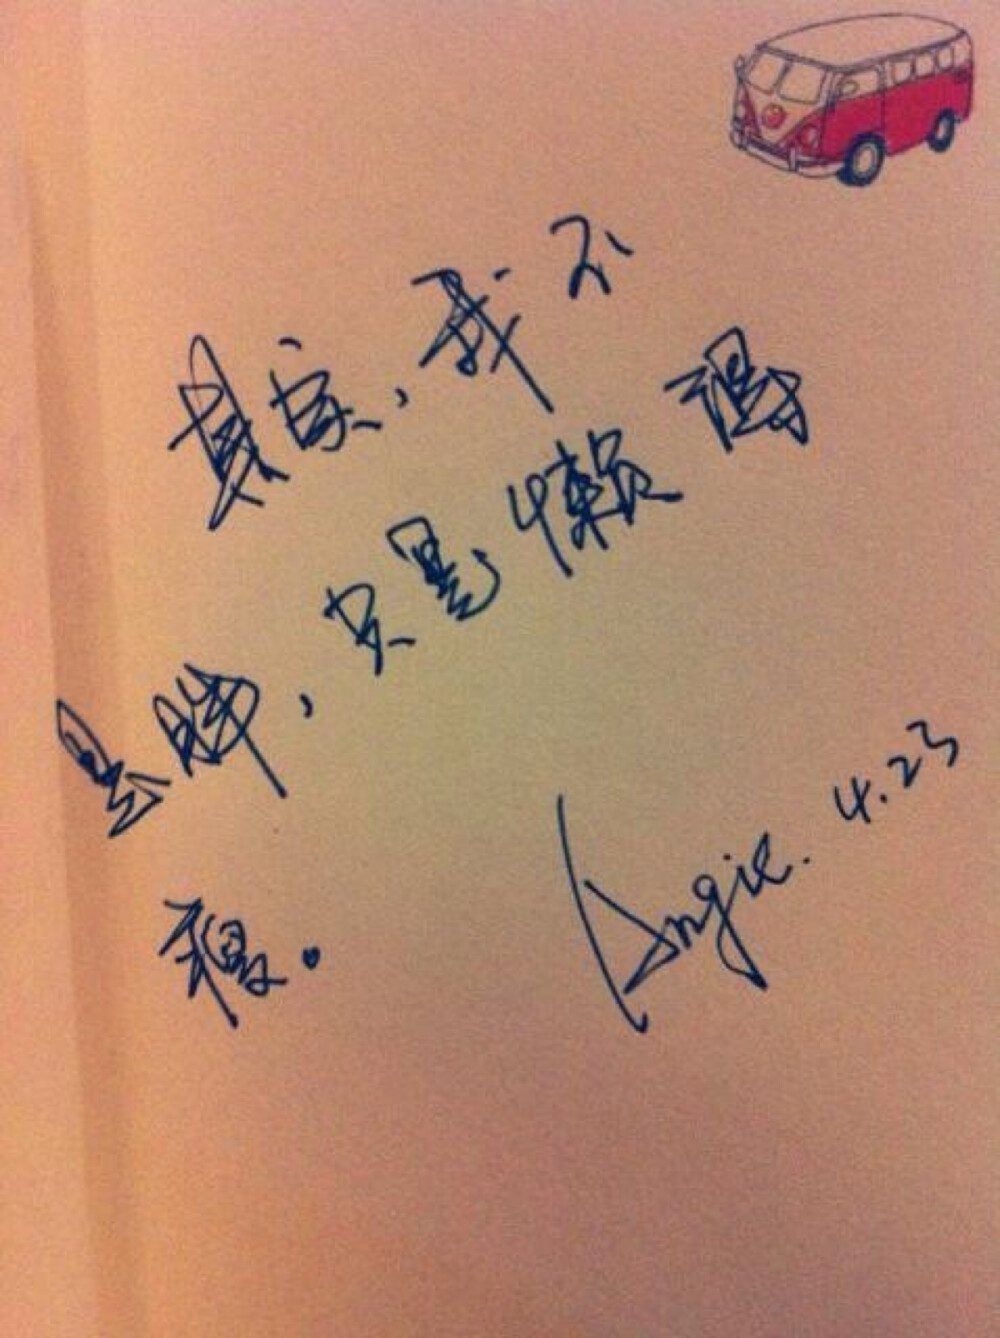 其实，我不
是胖，只是懒得
瘦。
Angie. 4.23